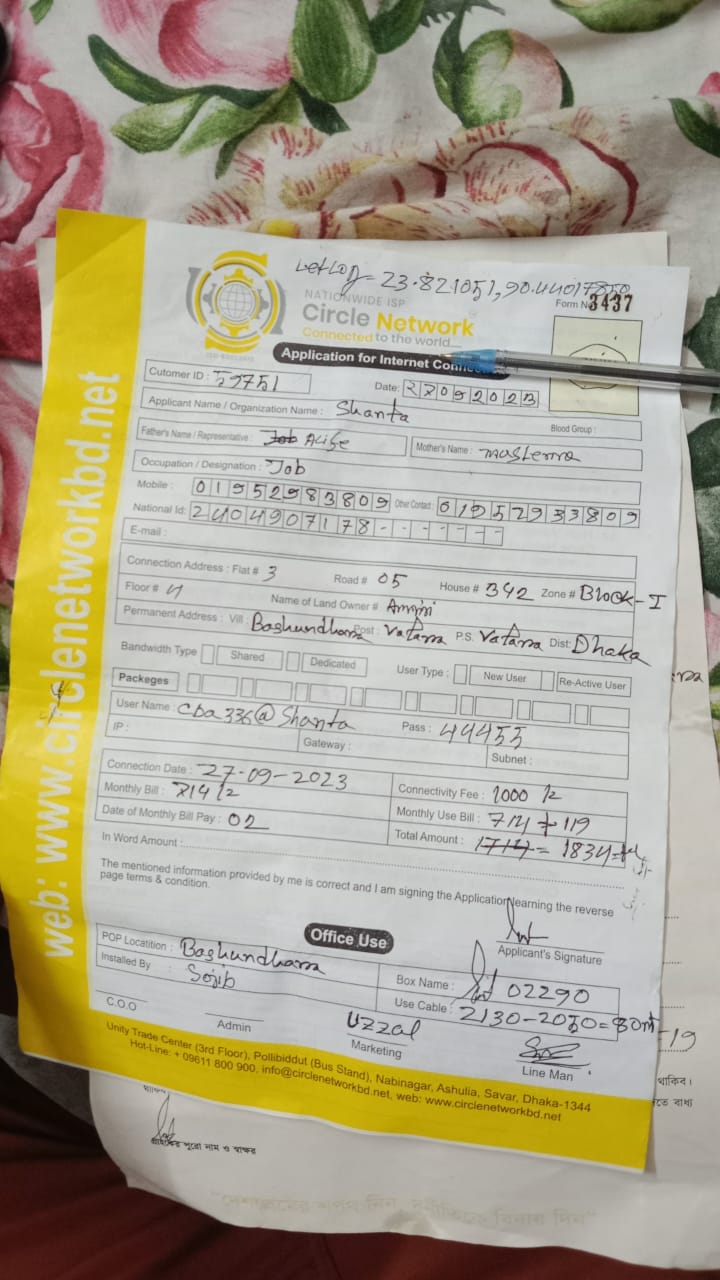 Let Log = 23.821051, 90.44017850
NATIONWIDE ISP
Form N 3437
Circle Network
Connected to the world....
Application for Internet Conne
Cutomer ID : 59751
Date: 27092023
Applicant Name / Organization Name : Shanta
Blood Group :
Father's Name / Representative : Job
Mother's Name :
Occupation / Designation : Job
Mobile : 01952983809 Other Contact : 01952933809
National Id: 2404907178
E-mail :
Connection Address : Flat # 3 Road # 05 House # 342 Zone # Block-I
Floor # 4 Name of Land Owner #
Permanent Address : Vill : Bashundhara Post : Vatara P.S. Vatara Dist: Dhaka
Bandwidth Type Shared Dedicated User Type : New User Re-Active User
Packeges
User Name : cba336@Shanta Pass : 44455
IP : Gateway : Subnet :
Connection Date : 27-09-2023 Connectivity Fee : 1000 /=
Monthly Bill : 714 /= Monthly Use Bill : 714 + 119
Date of Monthly Bill Pay : 02 Total Amount : 1714 = 1834=
In Word Amount :
The mentioned information provided by me is correct and I am signing the Application learning the reverse
page terms & condition.
Applicant's Signature
Office Use
POP Locatition : Bashundhara Box Name : 02290
Installed By : Sojib Use Cable : 2130-2050=80m
C.O.O Admin Uzzal
Marketing
Line Man
Unity Trade Center (3rd Floor), Pollibiddut (Bus Stand), Nabinagar, Ashulia, Savar, Dhaka-1344
Hot-Line: + 09611 800 900, info@circlenetworkbd.net, web: www.circlenetworkbd.net
web: www.circlenetworkbd.net
-19
থাকিব।
বাধ্য
গ্রাহকের পুরো নাম ও স্বাক্ষর